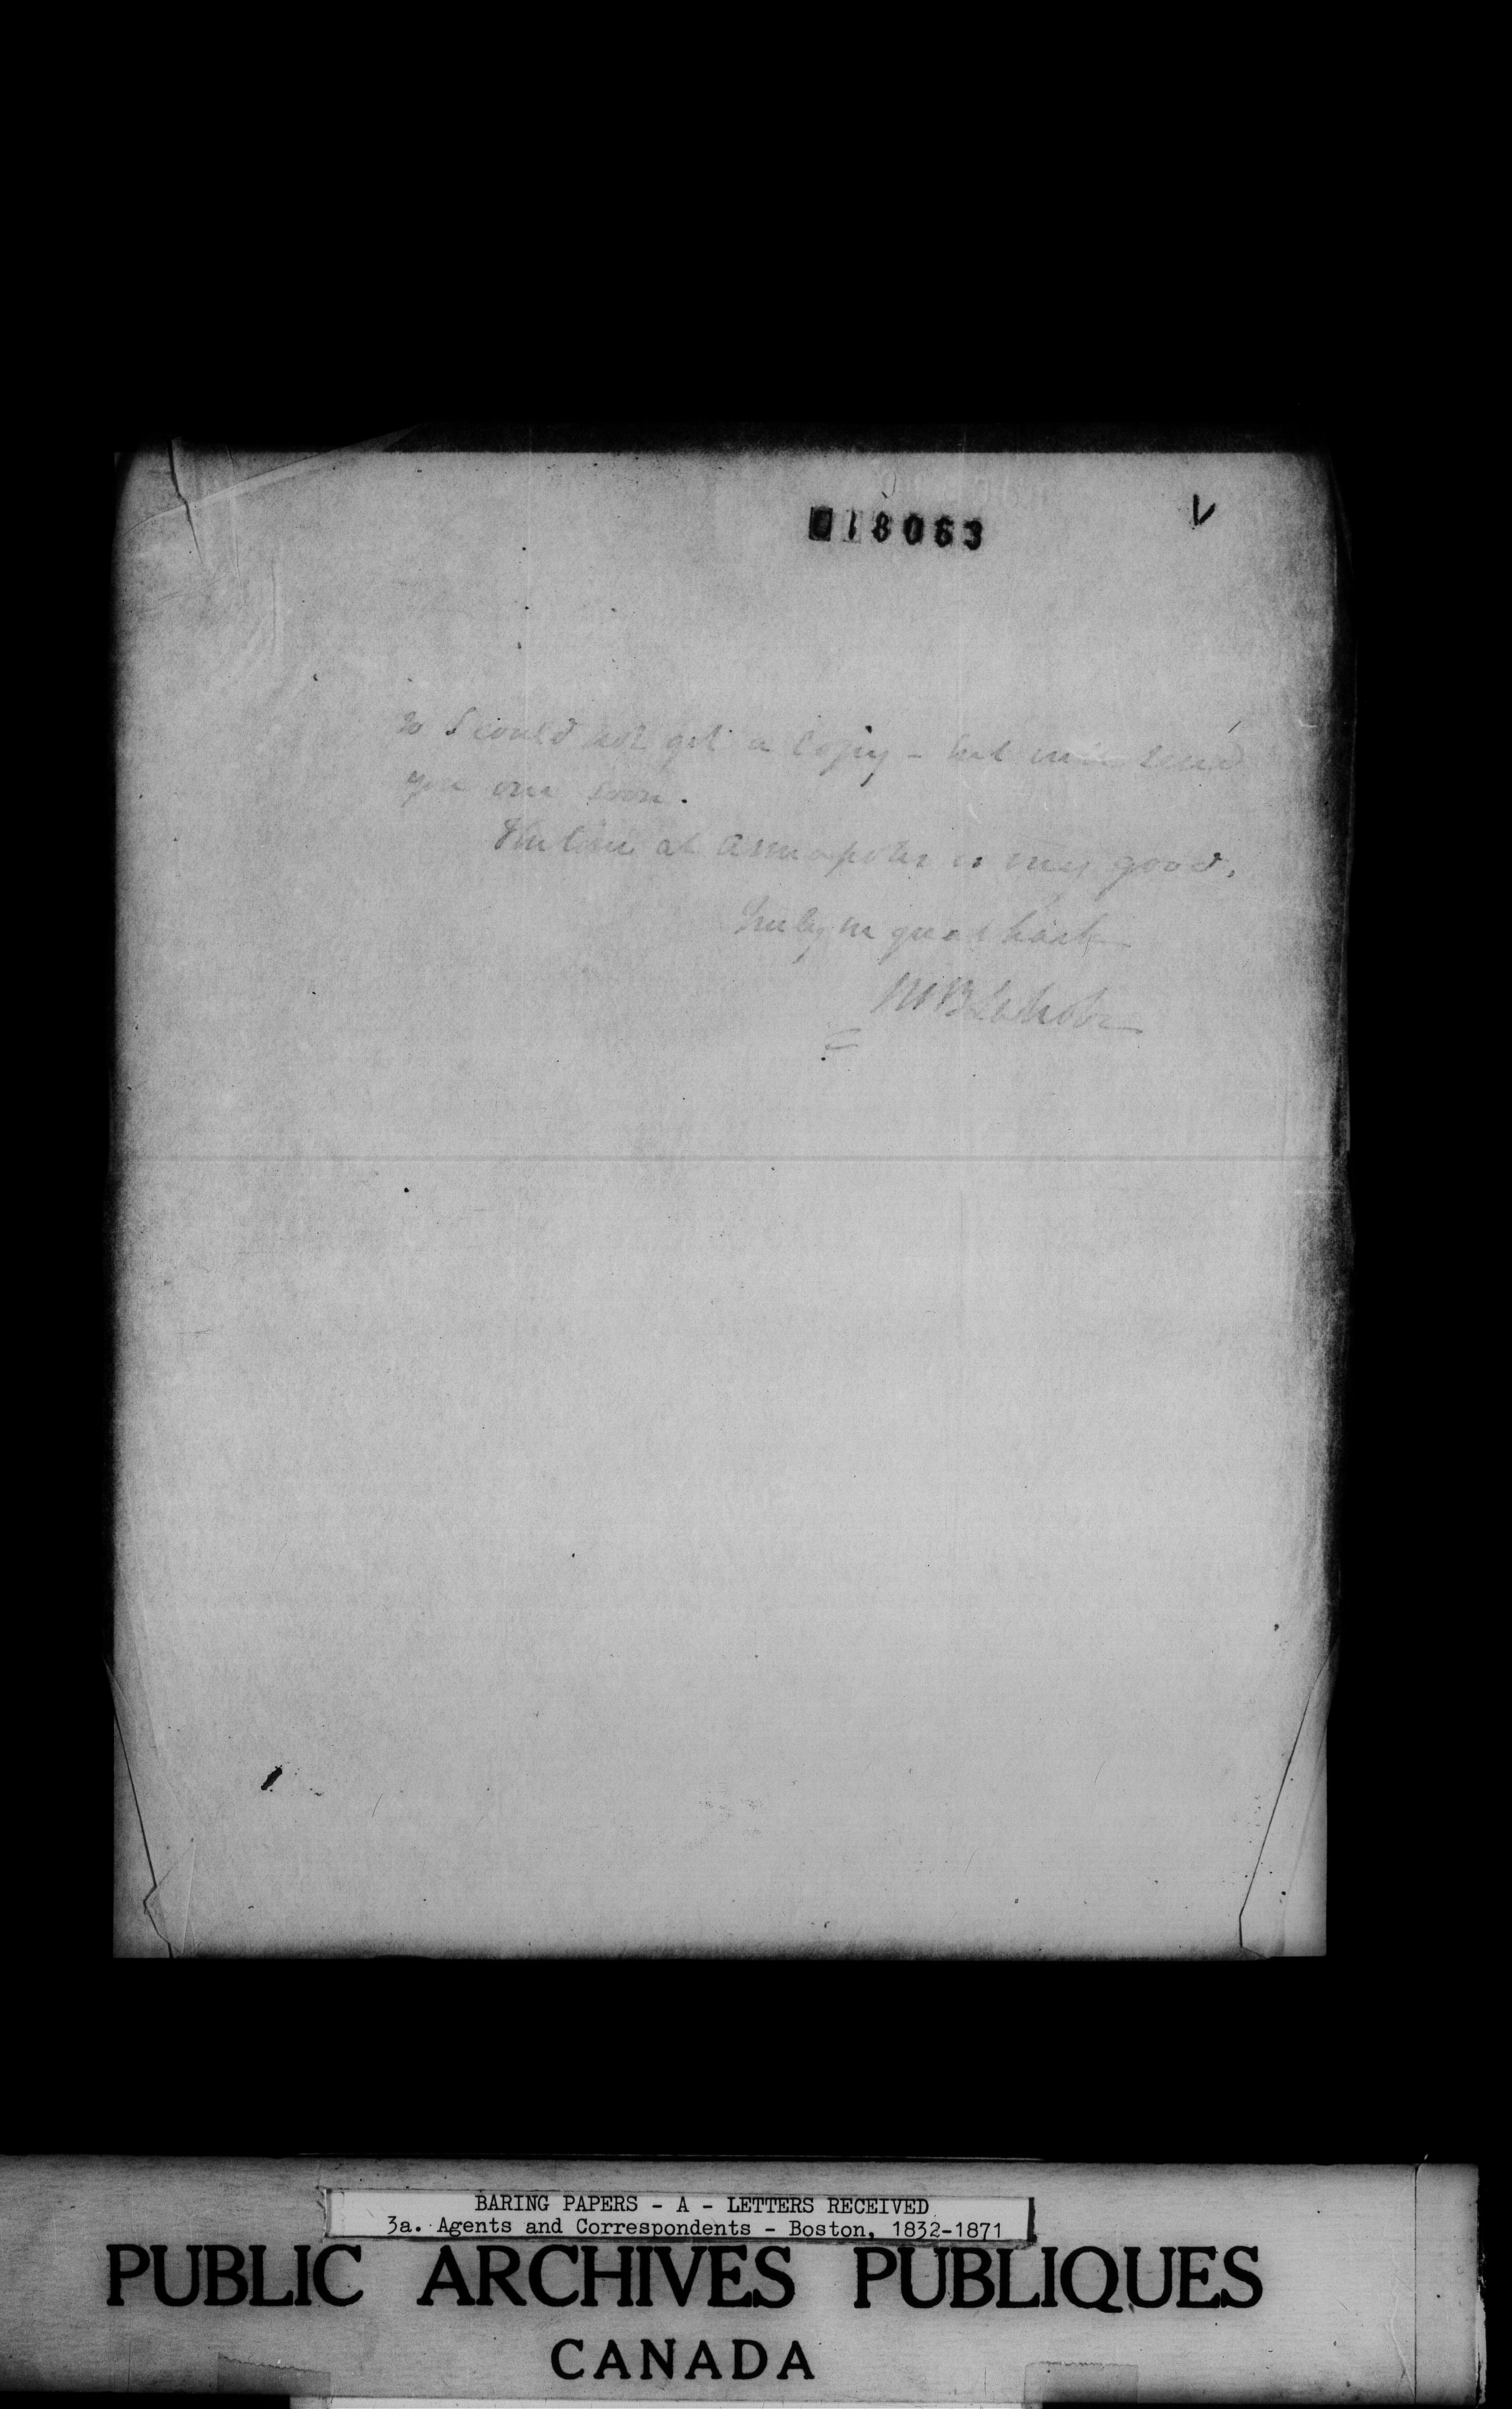 018063
so I could not get a Copy - but will send
you one soon.
at Annapolis is very good.
Truly in great haste
BARING PAPERS - A - LETTERS RECEIVED
3a. Agents and Correspondents - Boston, 1832-1871
PUBLIC ARCHIVES PUBLIQUES
CANADA